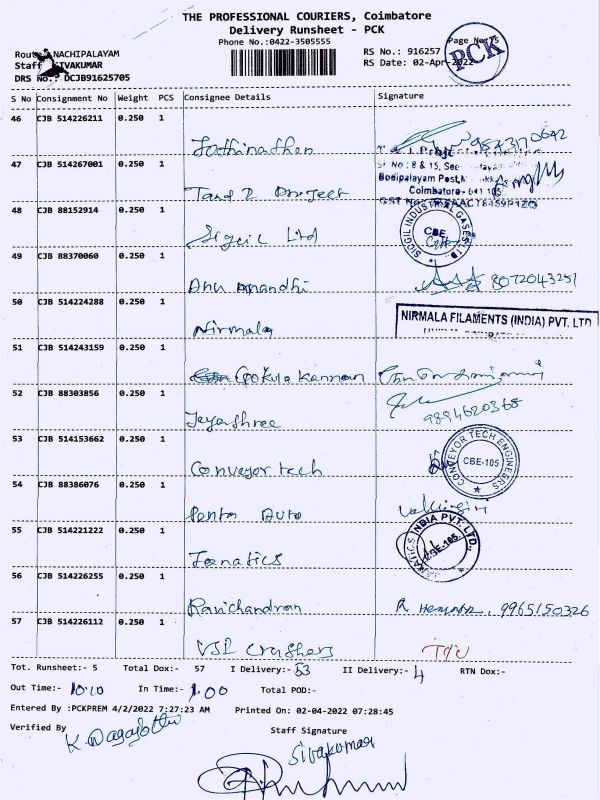 THE PROFESSIONAL COURIERS, Coimbatore
Delivery Runsheet - PCK
Phone No.:0422-3505555
Page No:5
PCK
Route: NACHIPALAYAM
RS No.: 916257
Staff: SIVAKUMAR
RS Date: 02-Apr-2022
DRS No.: DCJB91625705
S No Consignment No Weight PCS Consignee Details Signature
46 CJB 514226211 0.250 1
Jothinathan
47 CJB 514267001 0.250 1
Bodipalayam Post,
Coimbatore - 641 105
Tand D Project
48 CJB 88152914 0.250 1
Sigcil Ltd
SICGIL INDUSTRIAL GASES LTD.
CBE
49 CJB 88370060 0.250 1
Anu Anandhi 8072043251
50 CJB 514224288 0.250 1
Nirmala
NIRMALA FILAMENTS (INDIA) PVT. LTD
51 CJB 514243159 0.250 1
Gokula Kannan
52 CJB 88303856 0.250 1
Jeyashree
9894620368
53 CJB 514153662 0.250 1
Conveyor tech
CONVEYOR TECH ENGINEERS
CBE-105
54 CJB 88386076 0.250 1
Penta Auto
55 CJB 514221222 0.250 1
INDIA PVT. LTD.,
CBE-105
56 CJB 514226255 0.250 1
Ravichandran 9965150326
57 CJB 514226112 0.250 1
VSI Crushers
Tot. Runsheet:- 5 Total Dox:- 57 I Delivery:- 53 II Delivery:- 4 RTN Dox:-
Out Time:- 10.10 In Time:- 1.00 Total POD:-
Entered By :PCKPREM 4/2/2022 7:27:23 AM Printed On: 02-04-2022 07:28:45
Verified By Staff Signature
Sivakumar